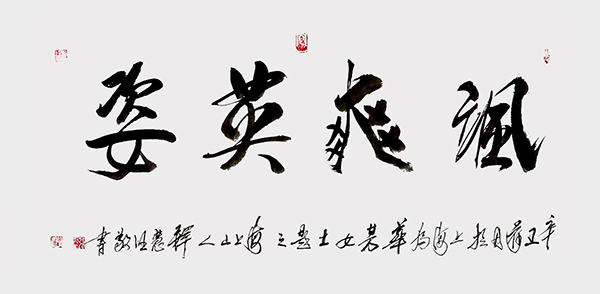 颯爽英姿
辛丑月於上海为華女士題之海上山人釋慧敬書